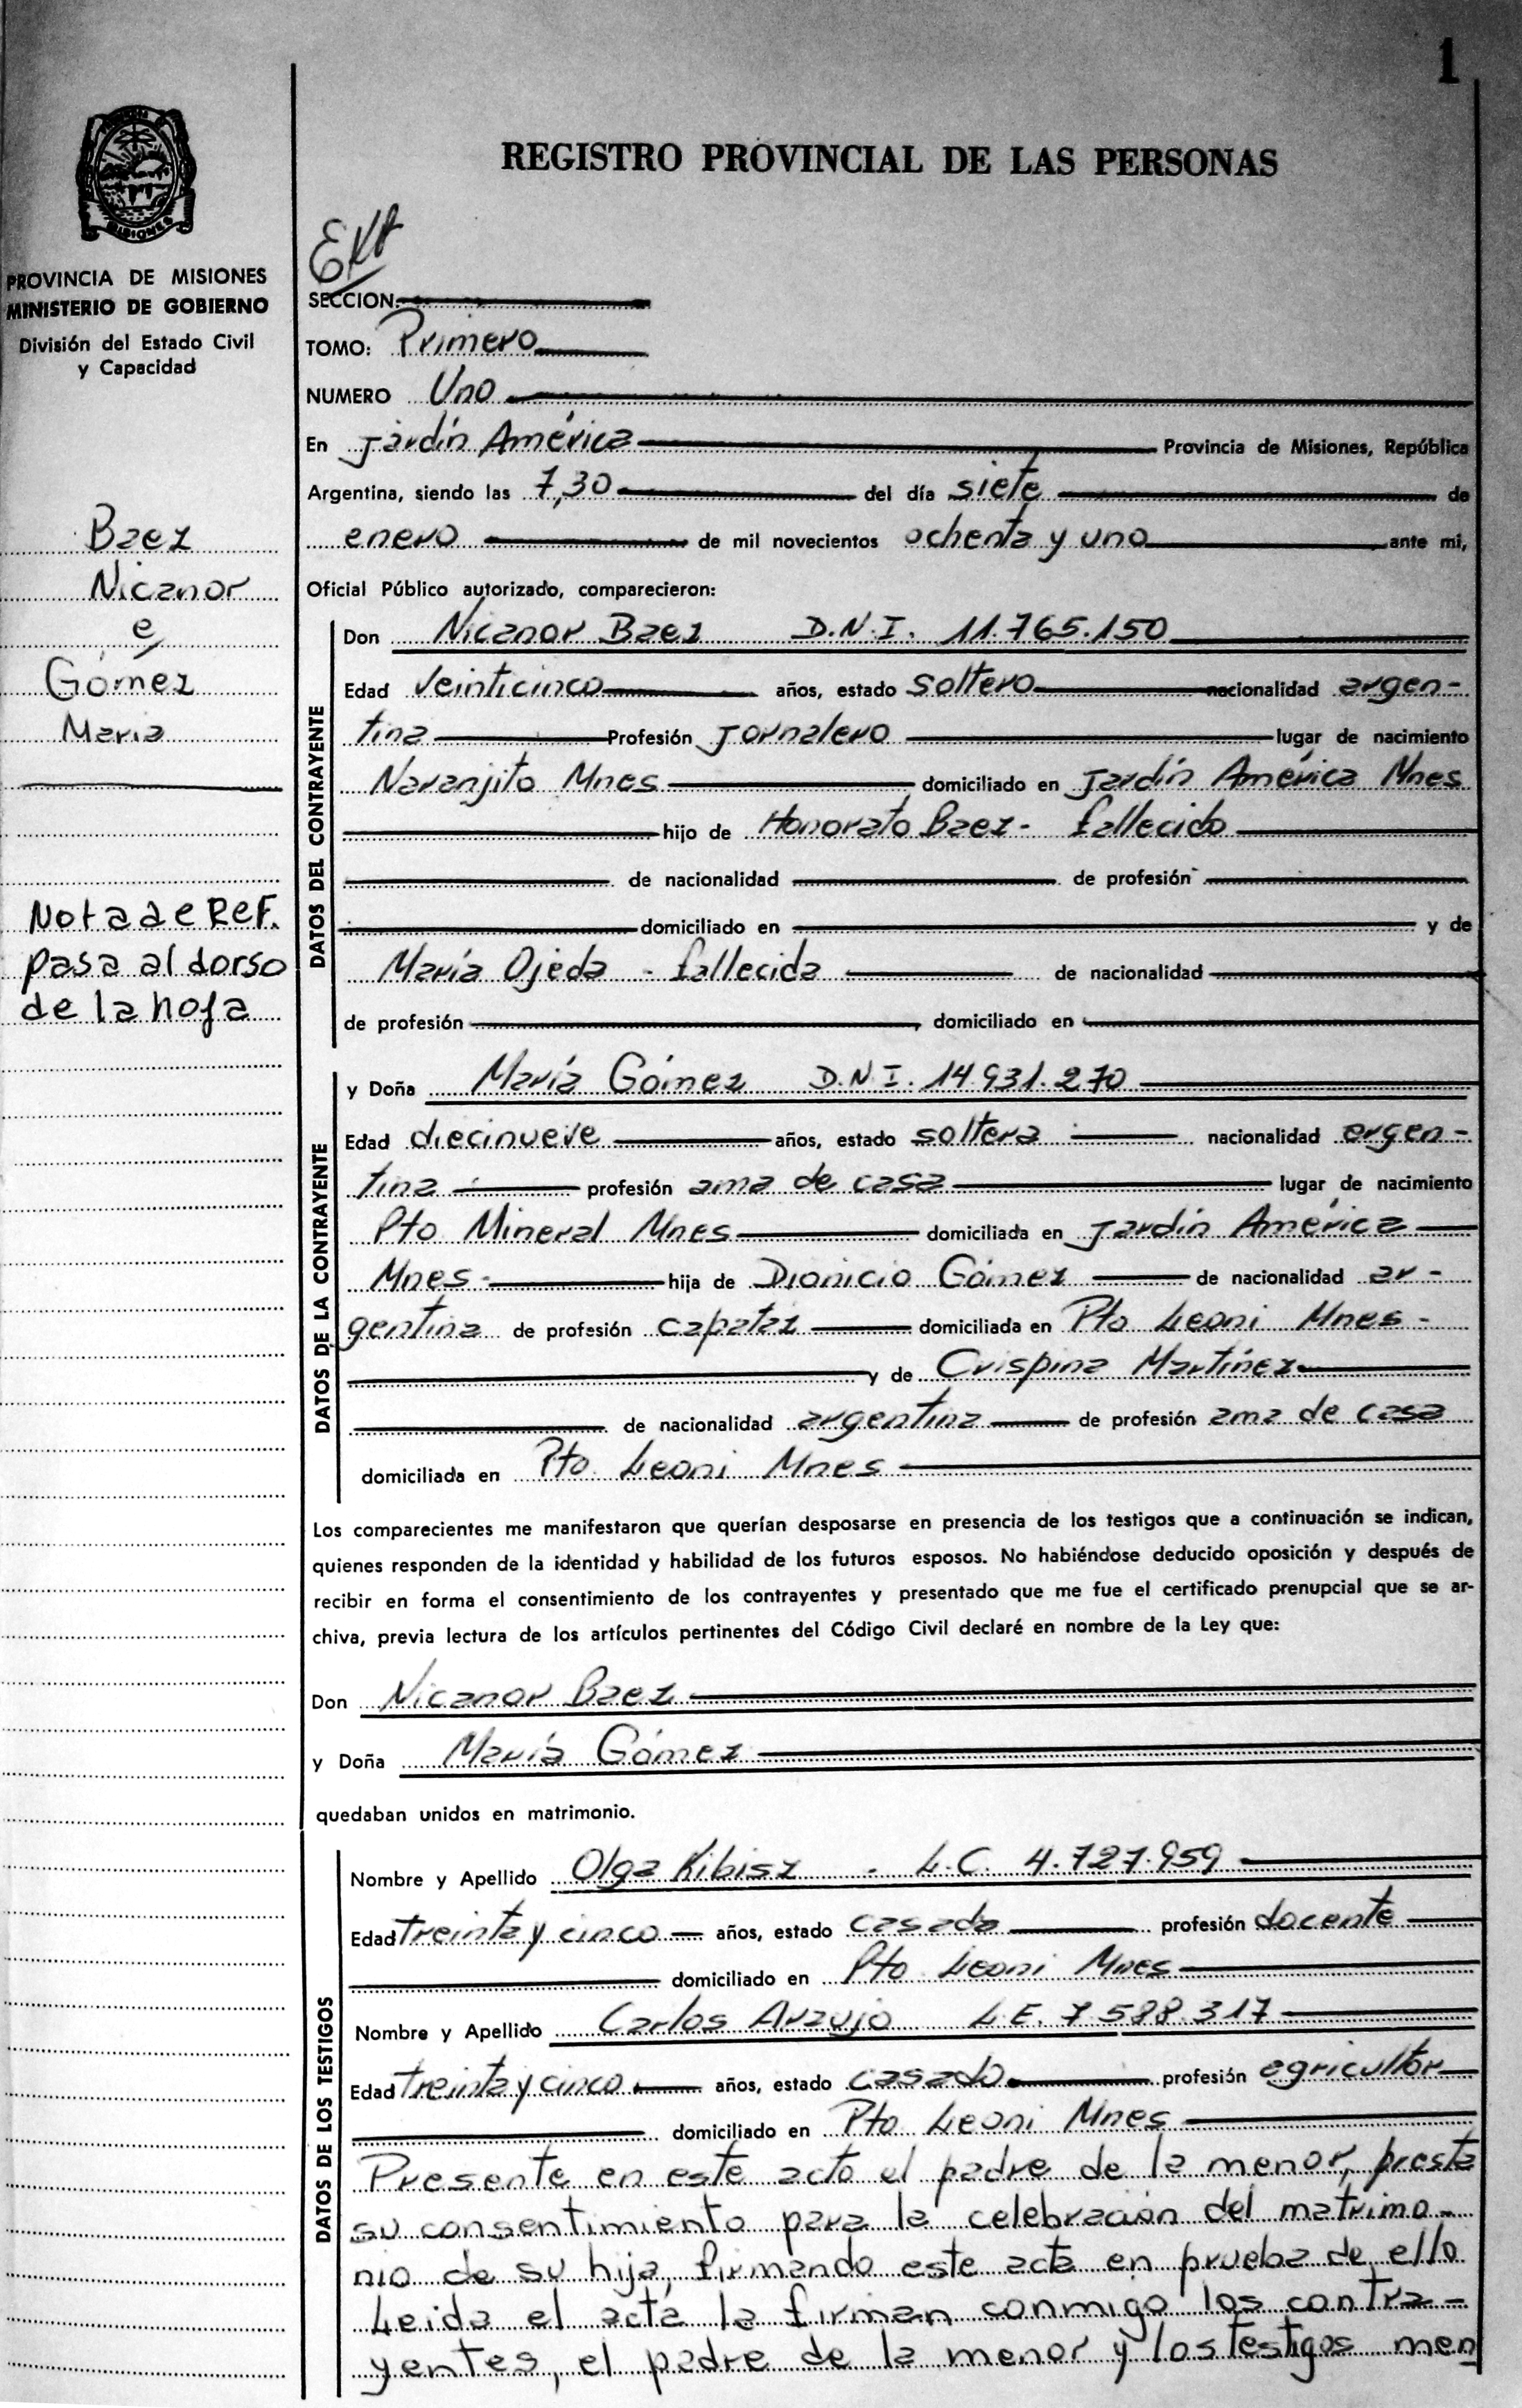 1
REGISTRO PROVINCIAL DE LAS PERSONAS
MISIONES
PROVINCIA DE MISIONES
MINISTERIO DE GOBIERNO
División del Estado Civil
y Capacidad
Baez
Nicanor
e
Gómez
Maria
Nota de Ref.
pasa al dorso
de la hoja
SECCION:
TOMO: Primero
NUMERO Uno
En Jardín América Provincia de Misiones, República
Argentina, siendo las 7,30 del día siete de
enero de mil novecientos ochenta y uno ante mi,
Oficial Público autorizado, comparecieron:
DATOS DEL CONTRAYENTE
Don Nicanor Baez D.N.I. 11.765.150
Edad veinticinco años, estado soltero nacionalidad argen-
tina Profesión Jornalero lugar de nacimiento
Naranjito Mnes domiciliado en Jardín América Mnes
hijo de Honorato Baez - fallecido
de nacionalidad de profesión
domiciliado en y de
María Ojeda - fallecida de nacionalidad
de profesión , domiciliado en
DATOS DE LA CONTRAYENTE
y Doña María Gómez D.N.I. 14.931.270
Edad diecinueve años, estado soltera nacionalidad argen-
tina profesión ama de casa lugar de nacimiento
Pto Mineral Mnes domiciliada en Jardín América
Mnes- hija de Dionicio Gómez de nacionalidad ar-
gentina de profesión capataz domiciliada en Pto Leoni Mnes-
y de Crispina Martínez
de nacionalidad argentina de profesión ama de casa
domiciliada en Pto. Leoni Mnes
Los comparecientes me manifestaron que querían desposarse en presencia de los testigos que a continuación se indican,
quienes responden de la identidad y habilidad de los futuros esposos. No habiéndose deducido oposición y después de
recibir en forma el consentimiento de los contrayentes y presentado que me fue el certificado prenupcial que se ar-
chiva, previa lectura de los artículos pertinentes del Código Civil declaré en nombre de la Ley que:
Don Nicanor Baez
y Doña María Gómez
quedaban unidos en matrimonio.
DATOS DE LOS TESTIGOS
Nombre y Apellido Olga Kibisz - L.C. 4.727.959
Edad treinta y cinco años, estado casada profesión docente
domiciliado en Pto Leoni Mnes
Nombre y Apellido Carlos Araujo L.E. 7.588.317
Edad treinta y cinco años, estado casado profesión agricultor
domiciliado en Pto Leoni Mnes
Presente en este acto el padre de la menor, presta
su consentimiento para la celebración del matrimo-
nio de su hija, firmando este acta en prueba de ello
Leida el acta la firman conmigo los contra-
yentes, el padre de la menor y los testigos men